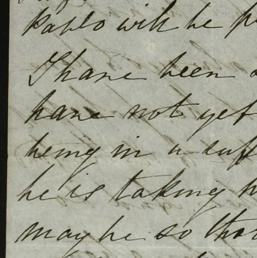 Pablo will be
I have been
have not yet
being in a
he is taking
may be so that